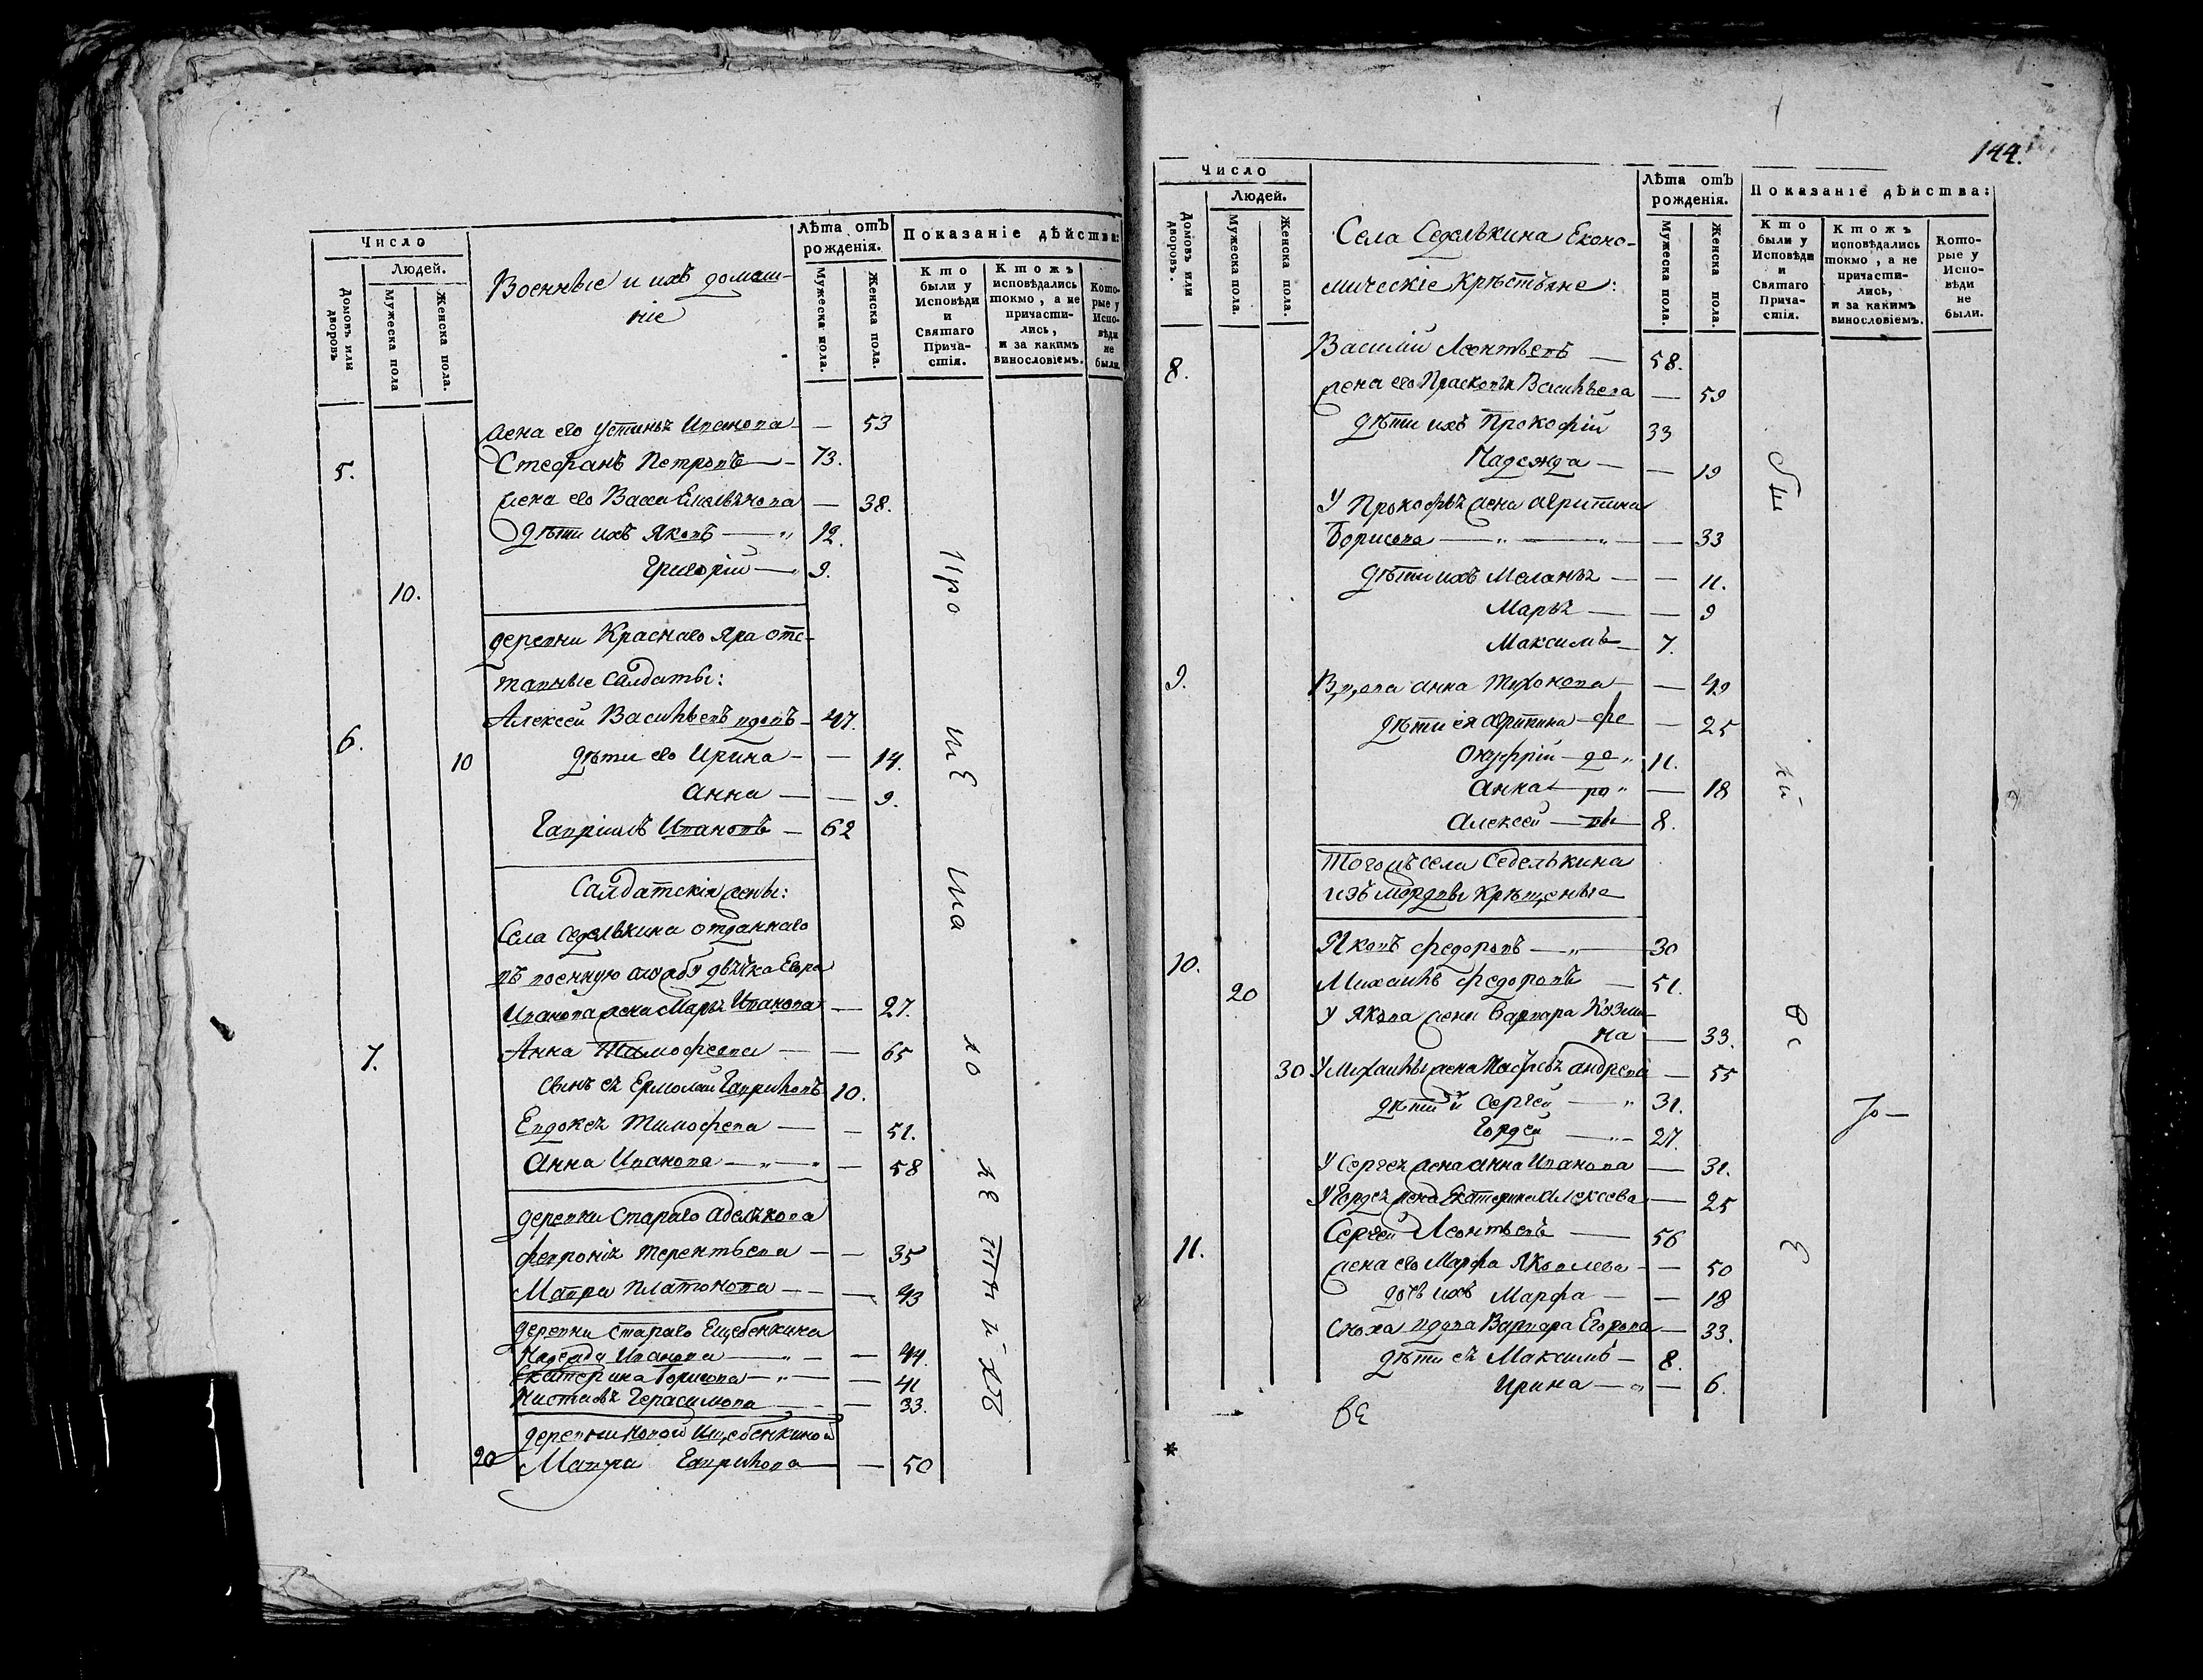 Число
Людей.
Домовъ или дворовъ
Мужеска пола
Женска пола.
Военные и ихъ домаш-
ніе
Лѣта отъ рожденія.
Мужеска пола.
Женска пола.
Показаніе дѣйства:
Кто были у Исповѣди и Святаго Прича-стія.
Ктожъ исповѣдались токмо, а не причасти-лись, и за какимъ винословіемъ.
Кото-рые у Испо-вѣди не были.
жена его Устинья Иванова — 53
5. Стефанъ Петровъ — 73.
жена его Васса Емельянова — 38.
дѣти ихъ Яковъ — 12.
10. Григорій — 9.
деревни Краснаго Яра отс-
тавные салдаты:
6. Алексей Васильевъ вдовъ — 47.
10 дѣти его Ирина — 14.
Анна — 9.
Гавріилъ Ивановъ — 62
Салдатскія жены:
Села Седелькина отданнаго
въ военную службу дьячка Егора
Иванова жена Марья Иванова — 27.
7. Анна Тимофеева — 65
сынъ ея Ермолай Гавриловъ 10.
Евдокея Тимофева — 51.
Анна Иванова — 58
деревни Стараго Аделякова
Февронія Терентьева — 35
Мавра Платонова — 43
деревни Стараго Ещебенкина
Надежда Иванова — 44.
Екатерина Борисова — 41
Настасья Герасимова — 33.
деревни Новой Ищебенкиной
20 Мавра Гаврилова — 50
144.
Число
Людей.
Домовъ или дворовъ.
Мужеска пола.
Женска пола.
Села Седелькина Еконо-
мическіе Крѣстьяне:
Лѣта отъ рожденія.
Мужеска пола.
Женска пола.
Показаніе дѣйства:
Кто были у Исповѣди и Святаго Прича-стія.
Ктожъ исповѣдались токмо, а не причасти-лись, и за какимъ винословіемъ.
Кото-рые у Испо-вѣди не были.
8. Василий Леонтьевъ — 58.
жена его Прасковья Васильева — 59
дѣти ихъ Прокофій 33
Надежда — 19
У Прокофья жена Агрипина
Борисова — 33
дѣти ихъ Меланья — 11.
Марья — 9
Максимъ — 7.
9. Вдова Анна Тихонова — 49
дѣти ея Агрипина — фе — 25
Онуфрій — до 11.
Анна — ро — 18
Алексей — вы 8.
Тогожъ села Седелькина
изъ мордвы крѣщеные
10. Яковъ Федоровъ — 30
20 Михаилъ Федоровъ — 51.
У Якова жена Варвара Козми-
на — 33.
30 У Михаилы жена Настасья Андреева — 55
дѣти и Сергей — 31.
Гордей — 27.
У Сергея жена Анна Иванова — 31.
У Гордея жена Екатерина Алексеева — 25
11. Сергей Леонтьевъ — 56
жена его Марфа Яковлева — 50
дочь ихъ Марфа — 18
Сноха вдова Варвара Егорова — 33.
дѣти ея Максимъ — 8.
Ирина — 6.
*